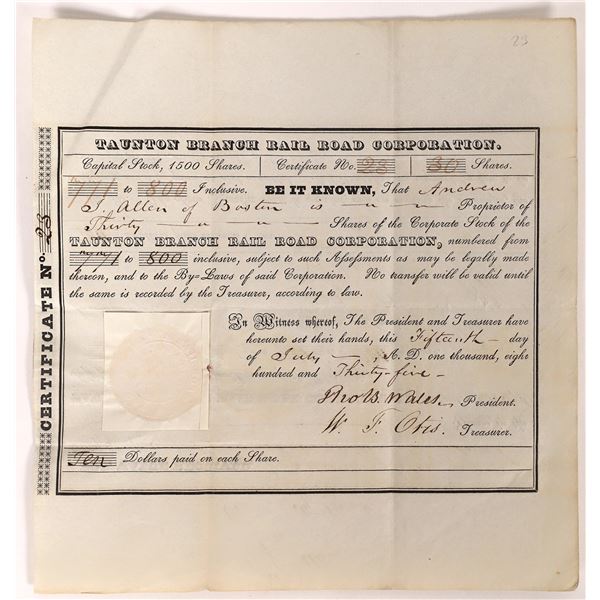 23
TAUNTON BRANCH RAIL ROAD CORPORATION.
Capital Stock, 1500 Shares. Certificate No. 23 30 Shares.
771 to 800 Inclusive. BE IT KNOWN, That Andrew
J. Allen of Boston is Proprietor of
Thirty Shares of the Corporate Stock of the
TAUNTON BRANCH RAIL ROAD CORPORATION, numbered from
771 to 800 inclusive, subject to such Assessments as may be legally made
thereon, and to the By=Laws of said Corporation. No transfer will be valid until
the same is recorded by the Treasurer, according to law.
In Witness whereof, The President and Treasurer have
hereunto set their hands, this Fifteenth
day of July, A. D. one thousand, eight
hundred and Thirty-five
Wales, President.
W. F. Otis, Treasurer.
Ten Dollars paid on each Share.
CERTIFICATE No. 23